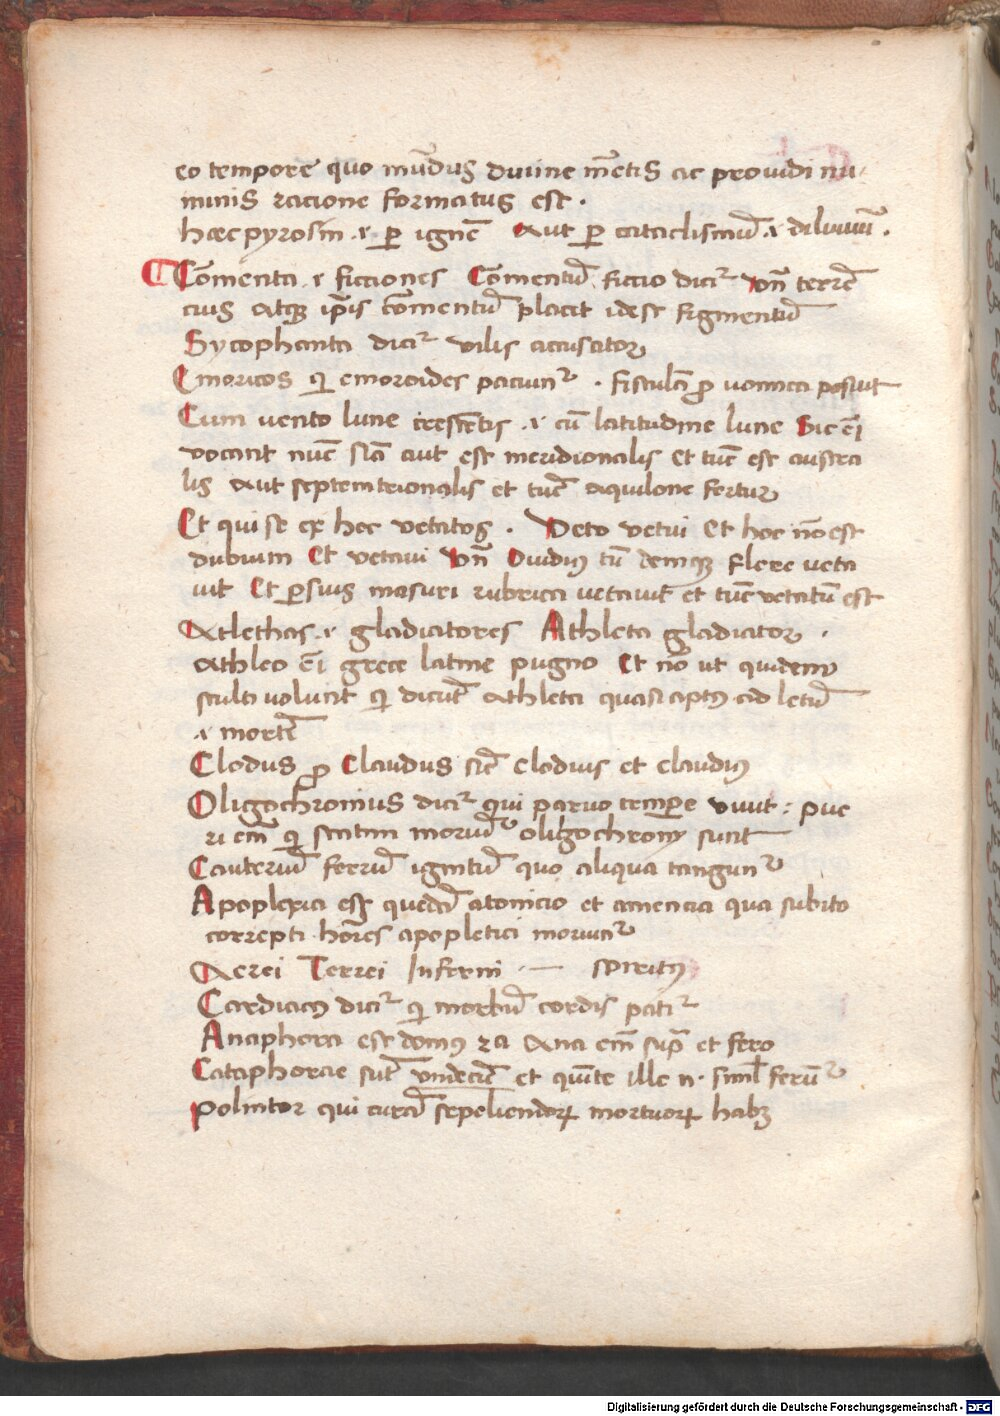 eo tempore quo mūdus diuine mētis ac prouidi nu-
minis racione formatus est .
haec pyrosin .i. ꝑ ignē Aut ꝑ cataclismū .i. diluuiū .
Cōmenta .i. ficciones Cōmentū ficcio dicit᷑ vn̄ terrē
cius atqꝫ ip̄is cōmentū placet idest figmentū
Sycophanta dicit᷑ vilis accusator
Emoricos qͥ emoroides paciunt᷑ . fisculā ꝓ vomica posuit
Cum vento lune crescētis .i. cū latitudine lune Sic em̄
vocant nūc słā aut est meridionalis et tūc est austra
lis Aut septemtrionalis et tūc aquilone fertur
Et qui se ex hoc vetatos . Veto vetui Et hoc nō est
dubium Et vetaui vn̄ Ouidiꝰ tū deniqꝫ flere ueta
uit Et ꝑsius masuri rubrica uetauit et tūc vetatū est
Atlethas .i. gladiatores Athleta gladiator .
Athleo em̄ grece latine pugno Et nō ut quidem
stulti volunt qͥ dicūt Athleta quasi aptꝰ ad letū
.i. mortē
Clodus ꝓ Claudus sic̄ clodius et claudiꝰ
Oligochronius dicit᷑ qui paruo tempore viuit : pue
ri em̄ qͥ statim moriūt᷑ oligochrony sunt
Cauteriū ferrū ignitū quo aliqua tangunt᷑
Apoplexia est quedā atonicio et amencia qua subito
correpti hōies apopletici moriunt᷑
Aerei Terrei Inferni . — spiritꝰ
Cardiacꝰ dicit᷑ qͥ morbū cordis patit᷑
Anaphora est domꝰ 2a Ana em̄ sup̄ et fero
Cataphorae sūt vndecīe et quīte ille n. siml̄ ferūt᷑
polinctor qui curā sepeliendoꝝ mortuoꝝ habꝫ
Digitalisierung gefördert durch die Deutsche Forschungsgemeinschaft - DFG